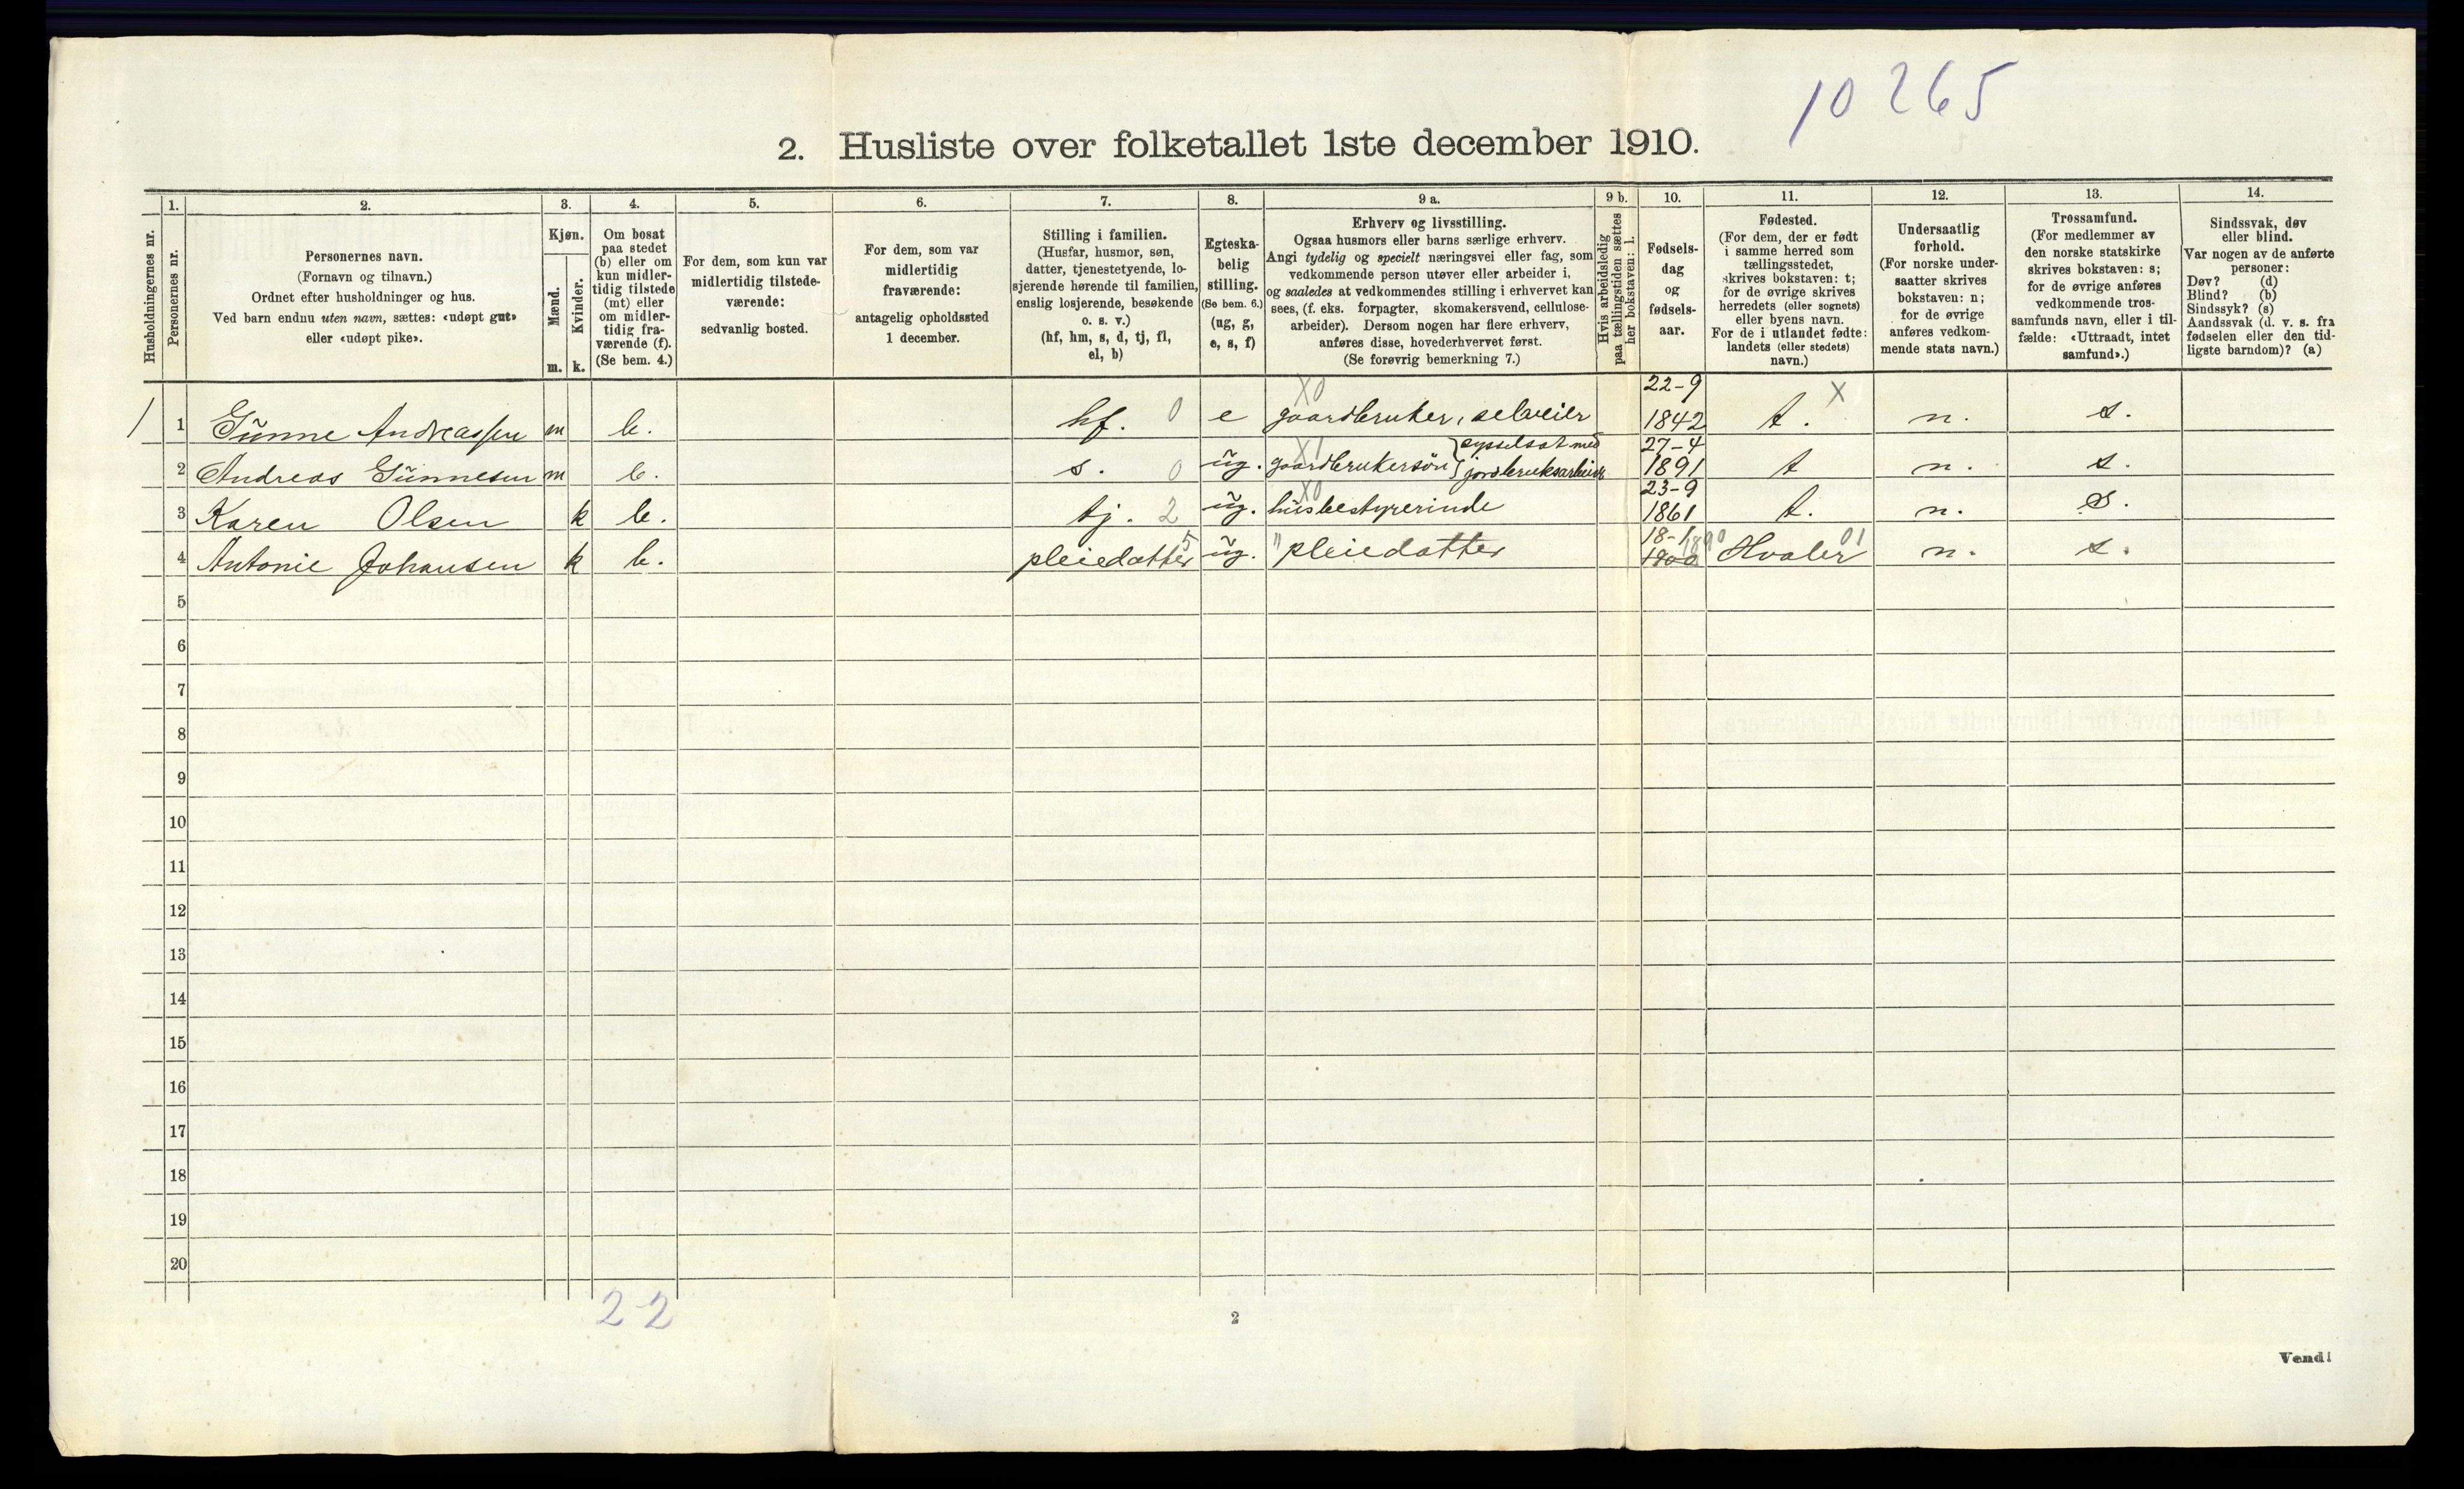 10265
2. Husliste over folketallet 1ste december 1910.
Husholdningernes nr.
1.
Personernes nr.
2.
Personernes navn.
(Fornavn og tilnavn.)
Ordnet efter husholdninger og hus.
Ved barn endnu uten navn, sættes: «udøpt gut»
eller «udøpt pike».
3.
Kjøn.
Mænd.
m.
Kvinder.
k.
4.
Om bosat
paa stedet
(b) eller om
kun midler-
tidig tilstede
(mt) eller
om midler-
tidig fra-
værende (f).
(Se bem. 4.)
5.
For dem, som kun var
midlertidig tilstede-
værende:
sedvanlig bosted.
6.
For dem, som var
midlertidig
fraværende:
antagelig opholdssted
1 december.
7.
Stilling i familien.
(Husfar, husmor, søn,
datter, tjenestetyende, lo-
sjerende hørende til familien,
enslig losjerende, besøkende
o. s. v.)
(hf, hm, s, d, tj, fl,
el, b)
8.
Egteska-
belig
stilling.
(Se bem. 6.)
(ug, g,
e, s, f)
9 a.
Erhverv og livsstilling.
Ogsaa husmors eller barns særlige erhverv.
Angi tydelig og specielt næringsvei eller fag, som
vedkommende person utøver eller arbeider i,
og saaledes at vedkommendes stilling i erhvervet kan
sees, (f. eks. forpagter, skomakersvend, cellulose-
arbeider). Dersom nogen har flere erhverv,
anføres disse, hovederhvervet først.
(Se forøvrig bemerkning 7.)
9 b.
Hvis arbeidsledig
paa tællingstiden sættes
her bokstaven: l.
10.
Fødsels-
dag
og
fødsels-
aar.
11.
Fødested.
(For dem, der er født
i samme herred som
tællingsstedet,
skrives bokstaven: t;
for de øvrige skrives
herredets (eller sognets)
eller byens navn.
For de i utlandet fødte:
landets (eller stedets)
navn.)
12.
Undersaatlig
forhold.
(For norske under-
saatter skrives
bokstaven: n;
for de øvrige
anføres vedkom-
mende stats navn.)
13.
Trossamfund.
(For medlemmer av
den norske statskirke
skrives bokstaven: s;
for de øvrige anføres
vedkommende tros-
samfunds navn, eller i til-
fælde: «Uttraadt, intet
samfund».)
14.
Sindssvak, døv
eller blind.
Var nogen av de anførte
personer:
Døv? (d)
Blind? (b)
Sindssyk? (s)
Aandssvak (d. v. s. fra
fødselen eller den tid-
ligste barndom)? (a)
X0 22-9 X
1 1 Günne Andreassen m b. hf. 0 e gaardbruker, selveier 1842 t. n. s.
X1 sysselsat med 27-4
2 Andreas Günnesen m b. s. 0 üg. gaardbrukersøn jordbruksarbeide 1891 t n. s.
X0 23-9
3 Karen Olsen k b. tj. 2 üg. hüsbestyrerinde 1861 t. n. s.
5 18-1 1890 01
4 Antonie Johansen k b. pleiedatter üg. " pleiedatter 1900 Hvaler n. s.
5
6
7
8
9
10
11
12
13
14
15
16
17
18
19
20
2-2
2
Vend!